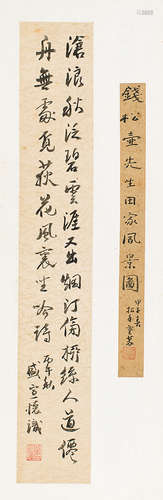 錢松壺先生田家風景圖
甲子春
滄浪秋泛碧雲涯又出烟汀絲人道僊
舟無處覓荻花風裏坐吟詩
丙午秋
盛宣懷識